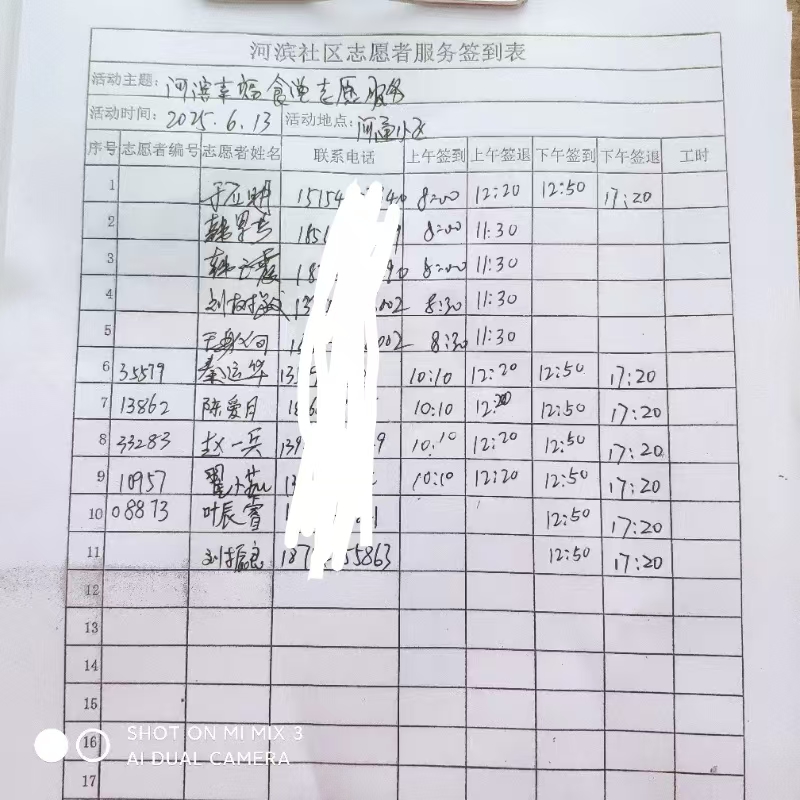 河滨社区志愿者服务签到表
活动主题: 河滨幸福食堂志愿服务
活动时间: 2025.6.13 活动地点: 河滨小区
序号 志愿者编号 志愿者姓名 联系电话 上午签到 上午签退 下午签到 下午签退 工时
1 15154 40 8:00 12:20 12:50 17:20
2 185 8:00 11:30
3 18 8:00 11:30
4 刘树敏 13 002 8:30 11:30
5 1 002 8:30 11:30
6 35579 秦运华 13 10:10 12:20 12:50 17:20
7 13862 陈爱月 10:10 12:20 12:50 17:20
8 33283 赵一兵 139 9 10:10 12:20 12:50 17:20
9 10957 翟小 1 10:10 12:20 12:50 17:20
10 08873 叶辰睿 1 12:50 17:20
11 刘振良 187 55863 12:50 17:20
12
13
14
15
16
17
SHOT ON MI MIX 3
AI DUAL CAMERA